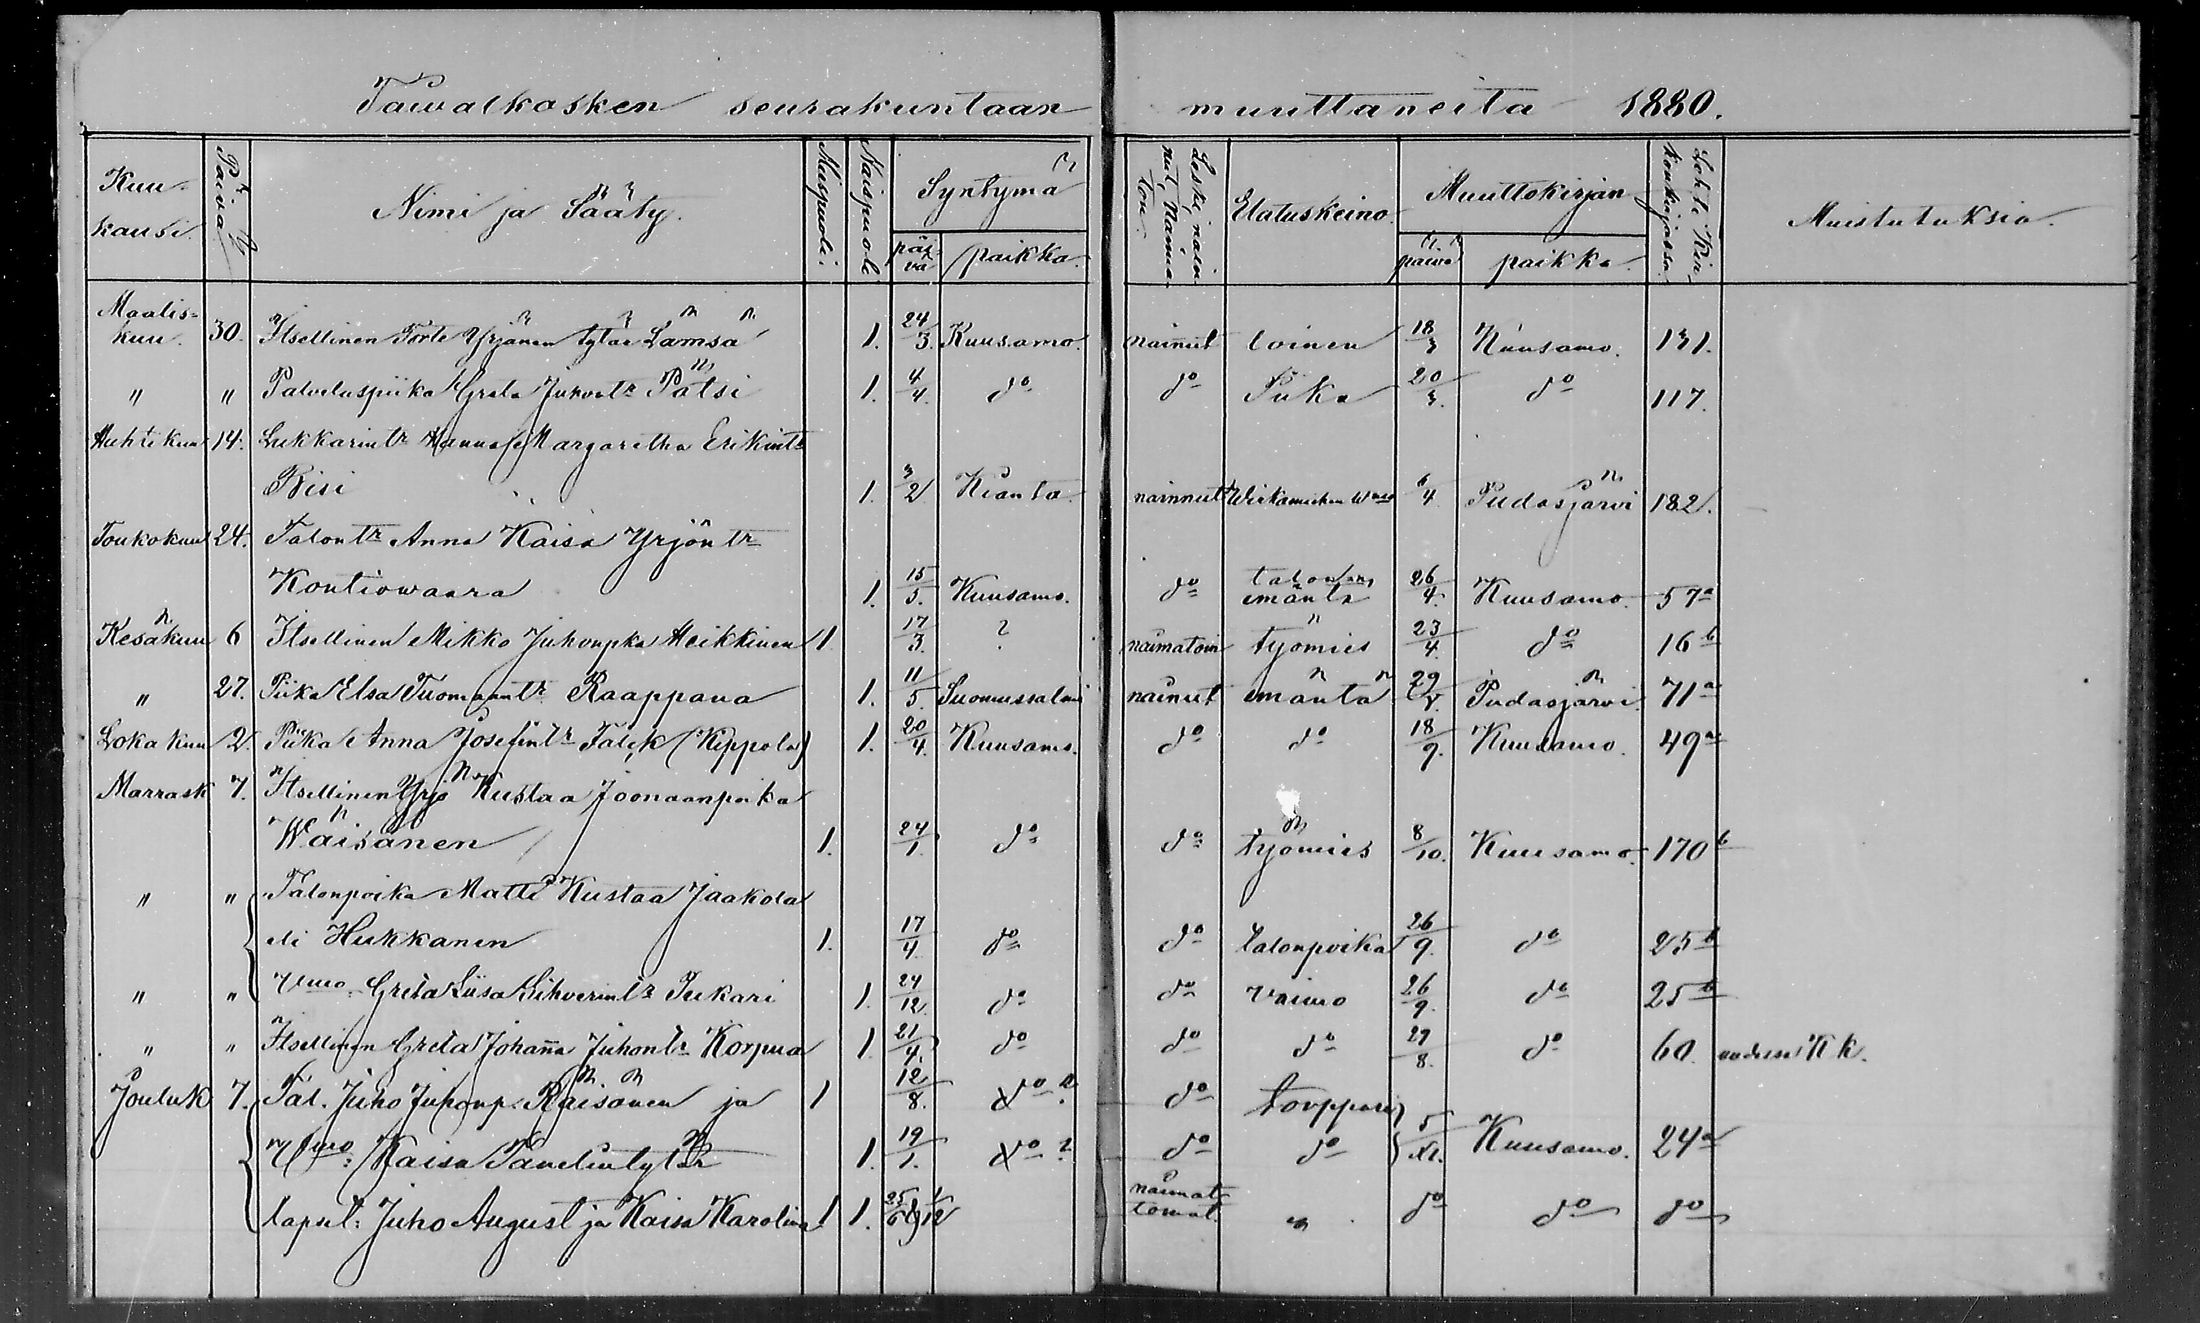 Taiwalkosken seurakuntaan muuttaneita 1880.
Kuukausi. Päivä Nimi ja Sääty. Miespuoli. Naispuoli. Syntymä päivä paikka. Leski, nainut, Naimaton. Elatuskeino. Muuttokirjan päivä paikka. Lehti Kirkonkirjassa Muistutuksia.
Maaliskuu. 30. Itsellinen Yrjänen tytär Lämsä 1. 24/3. Kuusamo. nainut loinen 18/3 Kuusamo. 131.
" " Palveluspiika Greta Juhontr Pätsi 1. 4/4. do do Piika 20/3. do 117.
Huhtikuu 14. Lukkarintr Margaretha Erikintr
1. 3/2 Kianta nainnut Wirkamiehen 6/4 Pudasjärvi 182.
Toukokuu 24. Talontr Anna Kaisa Yrjöntr
Kontiowaara 1. 15/5. Kuusamo. do talon emäntä 26/4. Kuusamo. 57a
Kesäkuu 6 Itsellinen Mikko Juhonpka Heikkinen 1 17/3. ? naimatoin työmies 23/4. do 16b
" 27. Piika Elsa Tuomaantr Raappana 1. 11/5. Suomussalmi nainut emäntä 29/V. Pudasjärvi 71a
Lokakuu 2. Piika Anna Josefintr Falck (Kippola) 1. 20/4. Kuusamo. do do 18/9. Kuusamo. 49a
Marrask 7. Itsellinen Yrjö Kustaa Joonaanpoika
Wäisänen 1. 24/1. do do työmies 8/10. Kuusamo 170b
" " Talonpoika Matti Kustaa Jaakola
eli Hukkanen 1. 17/4 do do talonpoika 26/9. do 25b
" " Vmo Greta Liisa Sihverintr Pukari 1. 24/12. do do vaimo 26/9. do 25b
" " Itsellinen Greta Johanna Juhontr Korpua 1. 21/4. do do do 29/8. do 60 uudessa Kk.
Jouluk 7. Tal. Juho Juhonp. Räisänen ja 1 12/8. do ? do torppari
Vmo: Kaisa Paulintytär 1. 19/1. do ? do do 5/XI. Kuusamo. 24a
lapset: Juho August ja Kaisa Karolina 1 1. 25/6 1/12 naimattomat " do do do